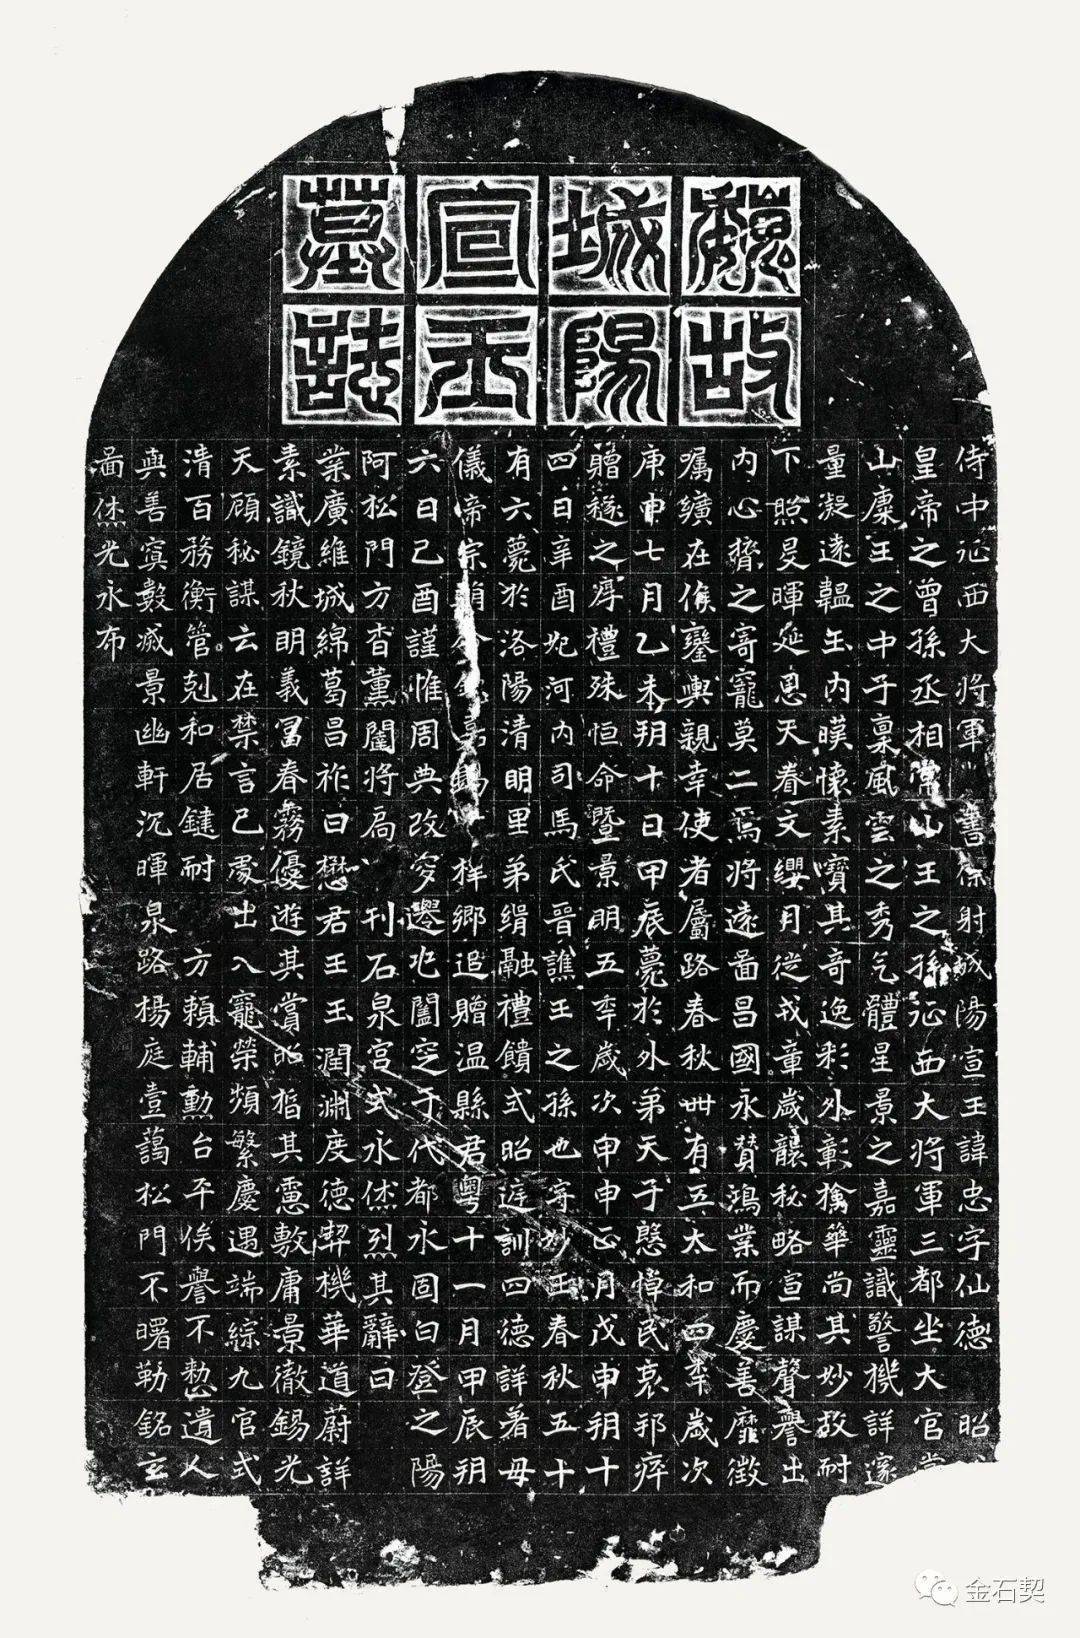 魏故
城陽
宣王
墓誌
侍中征西大将軍尚書僕射城陽宣王諱忠字仙德 昭
皇帝之曾孫丞相常山王之孫征西大将軍三都坐大官常
山康王之中子稟風雲之秀气體星景之嘉靈識警機詳邃
量凝遠韞玉内暎懷素寶其奇逸彩外彰擒華尚其妙故耐
下照旻暉延恩天眷文纓月從戎章歲襲秘略宣謀聲譽出
内心膂之寄寵莫二焉将遠啚昌國永賛鴻業而慶善靡徵
嘱纊在候鑾輿親幸使者屬路春秋卌有五太和四秊歲次
庚申七月乙未朔十日甲辰薨於外第天子慇悼民哀邦瘁
贈襚之厚禮殊恒命暨景明五秊歲次申申正月戊申朔十
四日辛酉妃河内司馬氏晉譙王之孫也寄妙玉春秋五十
有六薨於洛陽清明里弟緝融禮饋式昭訓四德詳著毋
儀帝宗嘉錫祥鄉追贈温縣君粤十一月甲辰朔
六日己酉謹惟周典改穸遷兆闔窆于代都永固白登之陽
阿松門方杳薰闥将扃 刊石泉宫式永烋烈其辭曰
業廣維城綿葛昌祚曰懋君王玉潤淵度德契機華道蔚詳
素識鏡秋明義冨春霧優遊其賞昭其慮敷庸景徹錫光
天顧秘謀云在禁言已處出入寵榮頻繁慶遇端綜九官式
清百務衡管剋和居鍵耐 方賴輔勲台平俟譽不憗遺人
與善寞數滅景幽軒沉暉泉路楊庭壹蔼松門不曙勒銘玄
啚烋光永布
金石契